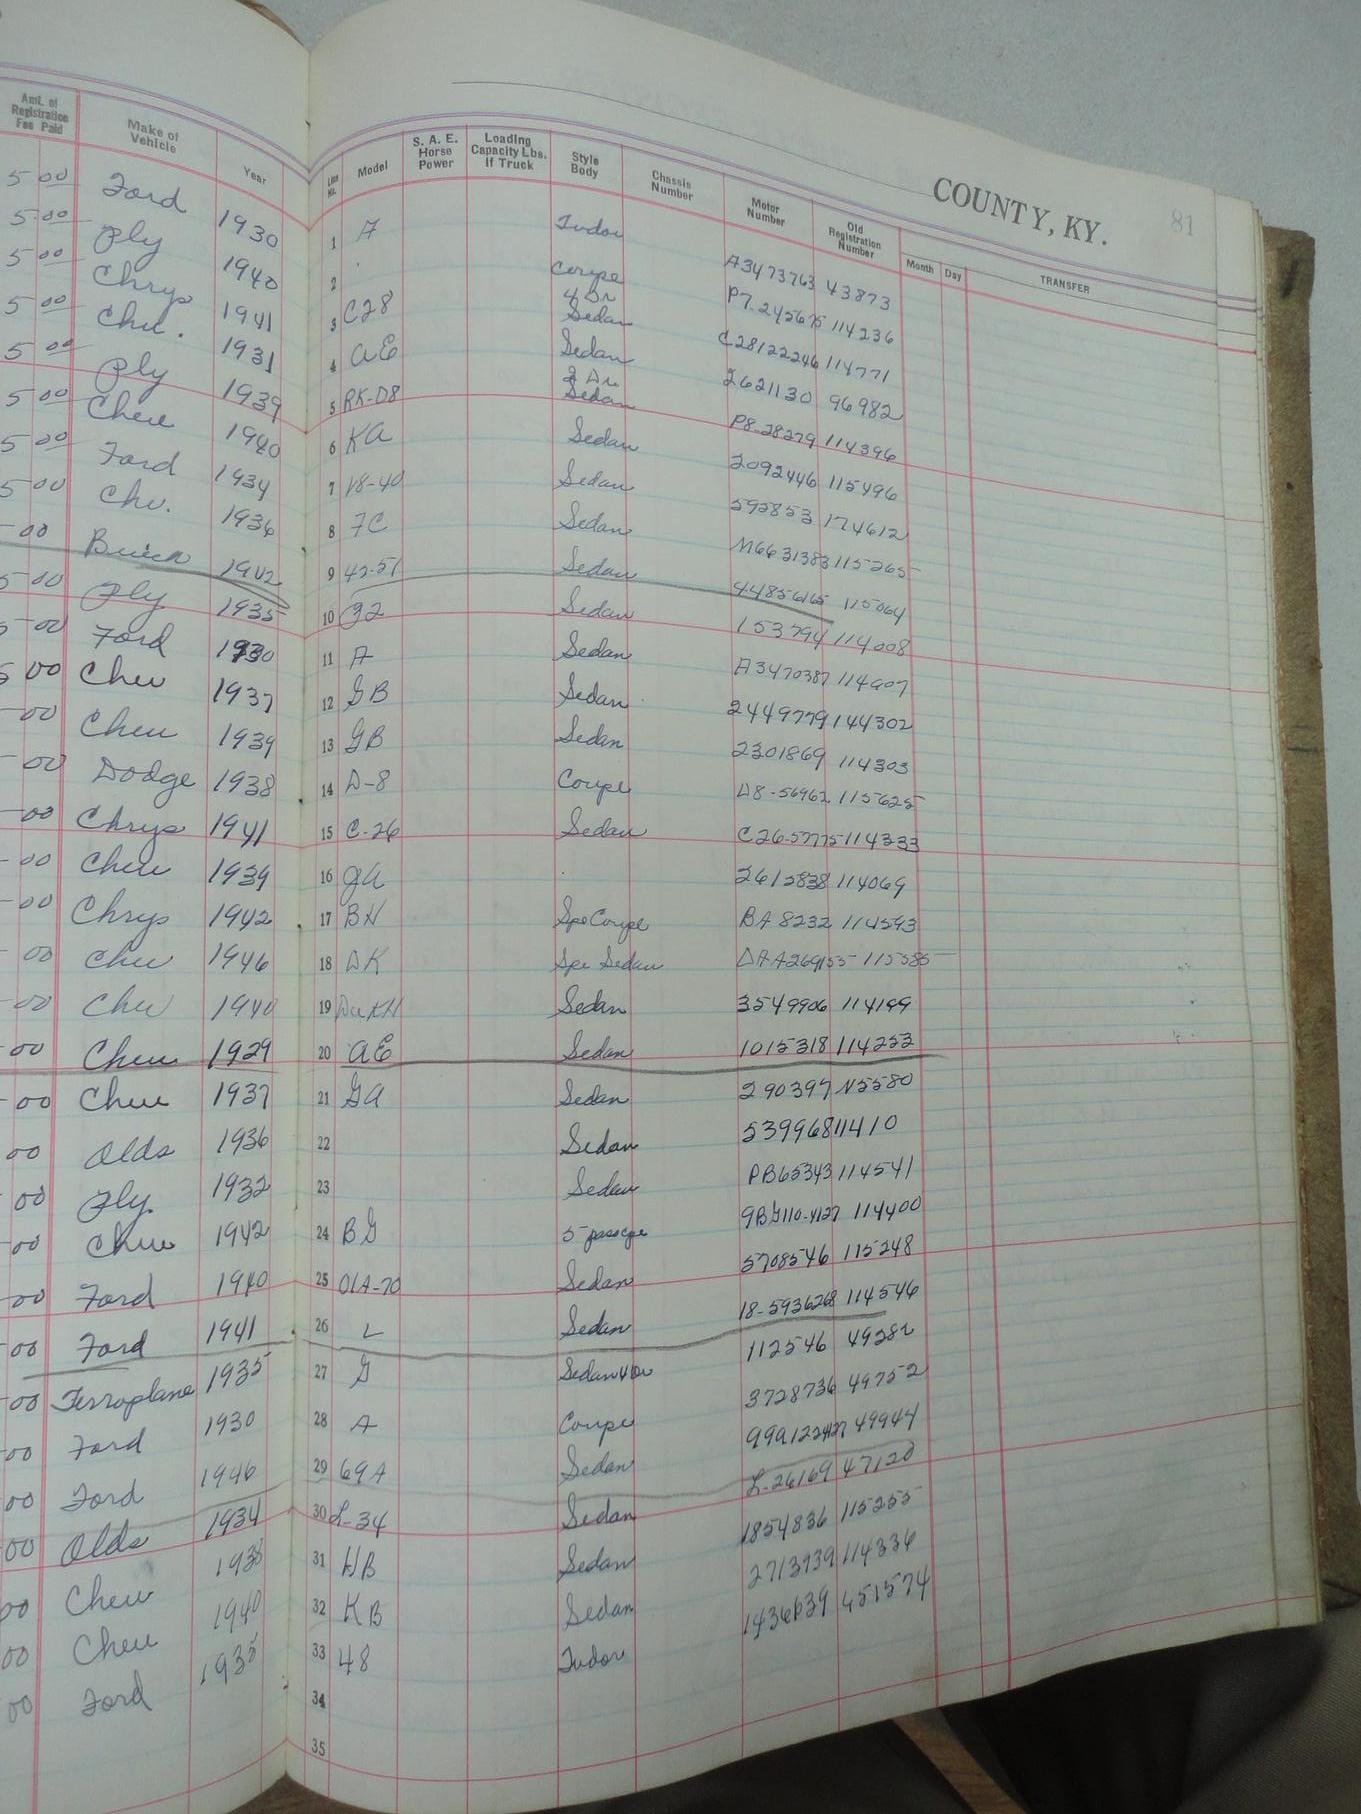 COUNTY, KY.
81
Amt. of Registration Fee Paid Make of Vehicle Year Line No. Model S. A. E. Horse Power Loading Capacity Lbs. If Truck Style Body Chassis Number Motor Number Old Registration Number Month Day TRANSFER
5 00 Ford 1930 1 A Tudor A3473763 43873
5 00 Ply 1940 2 Coupe P7.245675 114236
5 00 Chrys 1941 3 C28 4 Dr Sedan C28122246 114771
5 00 Che. 1931 4 AE Sedan 2621130 96982
5 00 Ply 1939 5 RK-D8 2 Dr Sedan P8-28279 114396
5 00 Chev 1940 6 KA Sedan 2092446 115496
5 00 Ford 1934 7 18-40 Sedan 592853 174612
5 00 Chv. 1936 8 FC Sedan M6631383 115265
00 Buick 1942 9 42-51 Sedan 44856165 115064
5 00 Ply 1935 10 32 Sedan 153794 114008
5 00 Ford 1930 11 A Sedan A3470387 114907
5 00 Chev 1937 12 GB Sedan 2449779 144302
00 Chev 1939 13 GB Sedan 2301869 114303
00 Dodge 1938 14 D-8 Coupe D8-56962 115625
00 Chrys 1941 15 C-26 Sedan C26-57775 114333
00 Chev 1939 16 JA 2612838 114069
00 Chrys 1942 17 BH Spe Coupe BA 8232 114593
00 Chev 1946 18 DK Spe Sedan DAA269155 115585
00 Chev 1940 19 Sedan 3549906 114199
00 Chev 1929 20 AE Sedan 1015318 114253
00 Chev 1937 21 GA Sedan 290397 115580
00 Olds 1936 22 Sedan 5399681 1410
00 Ply. 1932 23 Sedan PB65343 114541
00 Chev 1942 24 BG 5 pass cpe 114400
00 Ford 1940 25 01A-70 Sedan 5708546 115248
00 Ford 1941 26 L Sedan 18-5936268 114546
00 Terraplane 1935 27 G Sedan 4 Dr 112546 49282
00 Ford 1930 28 A Coupe 3728736 49752
00 Ford 1946 29 69A Sedan 49944
00 Olds 1934 30 L-34 Sedan L-26169 47120
00 Chev 1938 31 HB Sedan 1854836 115255
00 Chev 1940 32 KB Sedan 2713939 114336
00 Ford 1935 33 48 Tudor 1436639 451574
34
35